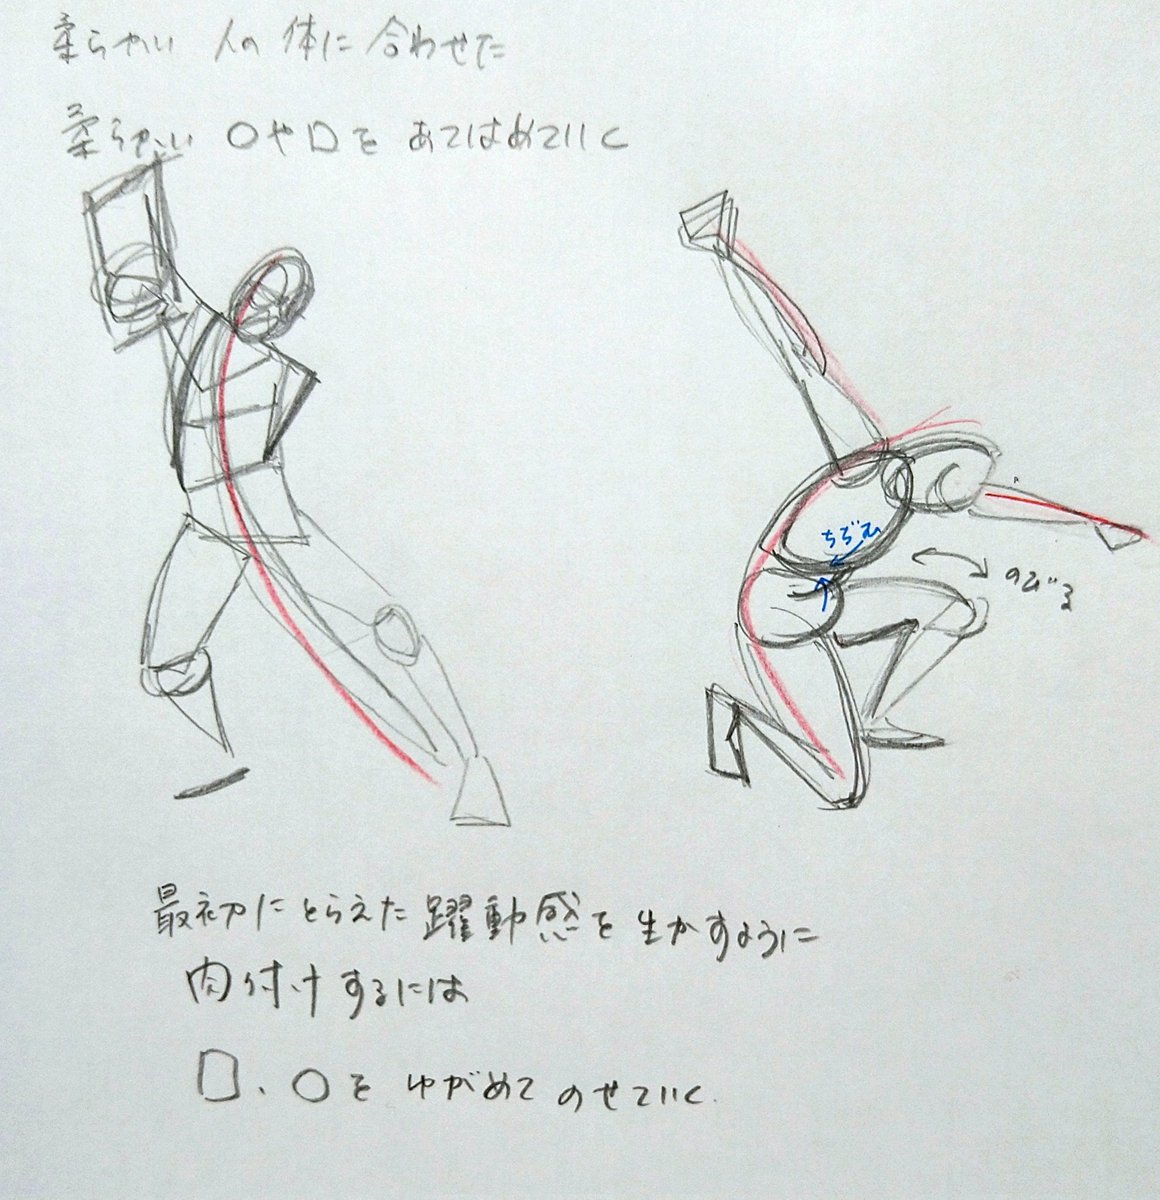 柔らかい 人の 体に 合わせた
柔らかい ○や□を あてはめていく
ちぢむ
のびる
最初にとらえた躍動感を生かすように
肉付けするには
□、○を ゆがめて のせていく.